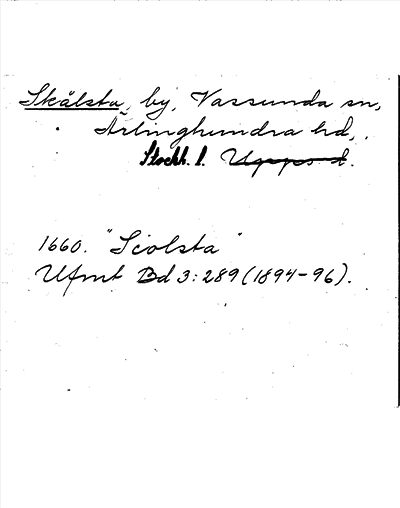 Skålsta, by, Vassunda sn,
Ärlinghundra hd,
Stockh. l. Uppps l.
1660. "Sciolsta"
Ufmt Bd 3:289 (1894-96).